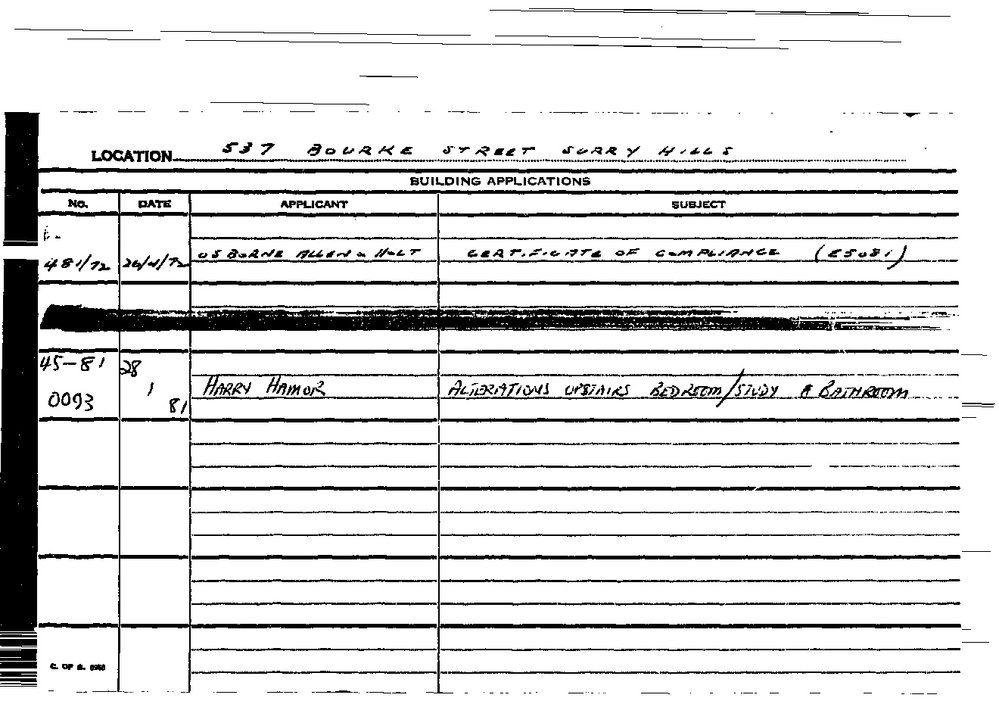 LOCATION 537 BOURKE STREET SURRY HILLS
BUILDING APPLICATIONS
No. DATE APPLICANT SUBJECT
481/72 26/4/72 OSBORNE ALLEN & HOLT CERTIFICATE OF COMPLIANCE (E5081)
45-81 28
0093 1 81 HARRY HAMOR ALTERATIONS UPSTAIRS BEDROOM/STUDY & BATHROOM
C. OF S.